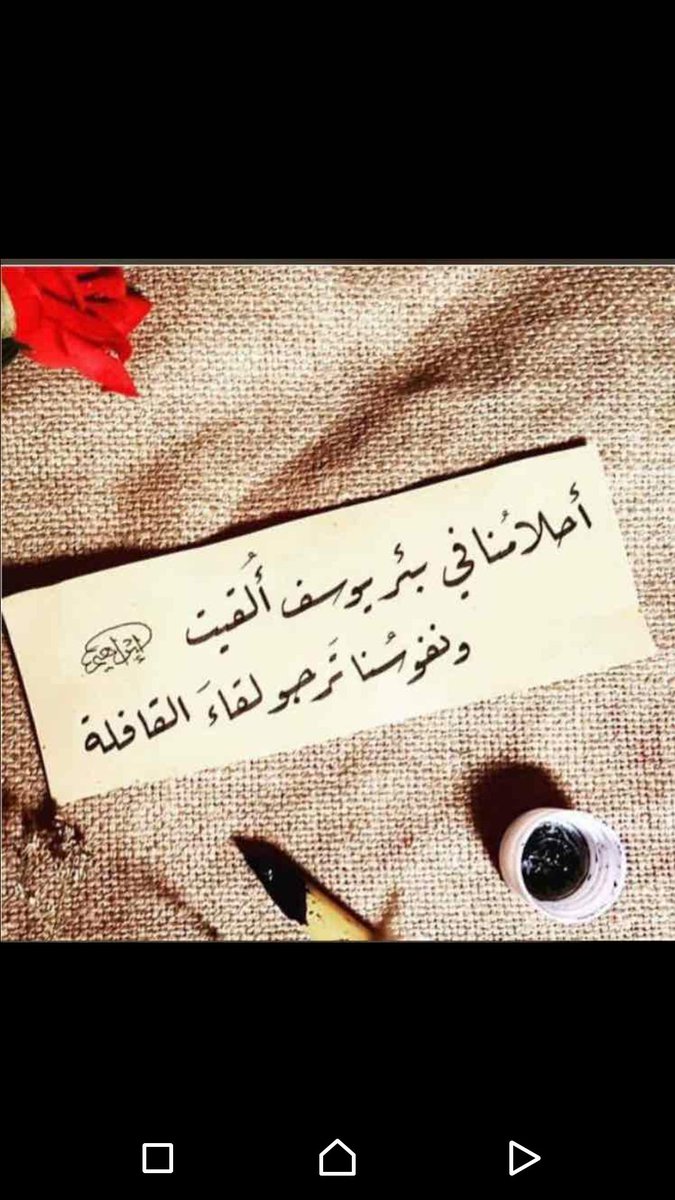 أحلامُنا في بئر يوسف أُلقيت
ونفوسُنا تَرجو لقاءَ القافلة
إبراهيم